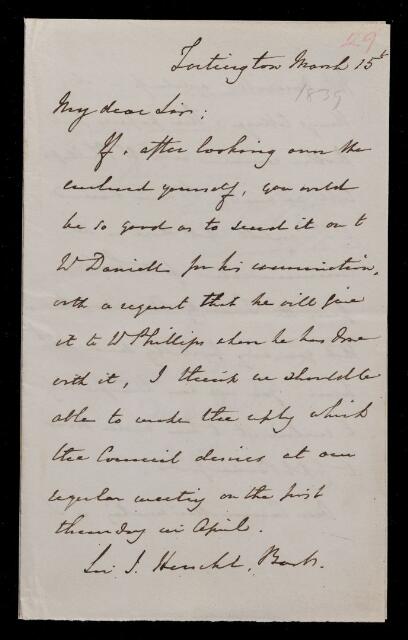 29
Tortington March 15th
1839
My dear Sir;
If, after looking over the
enclosed yourself, you would
be so good as to send it on to
W Daniell for his examination,
with a request that he will give
it to W Phillips when he has done
with it, I think we should be
able to make the reply which
the Council desires at our
regular meeting on the first
thursday in April.
Sir J. Herschel, Bart.